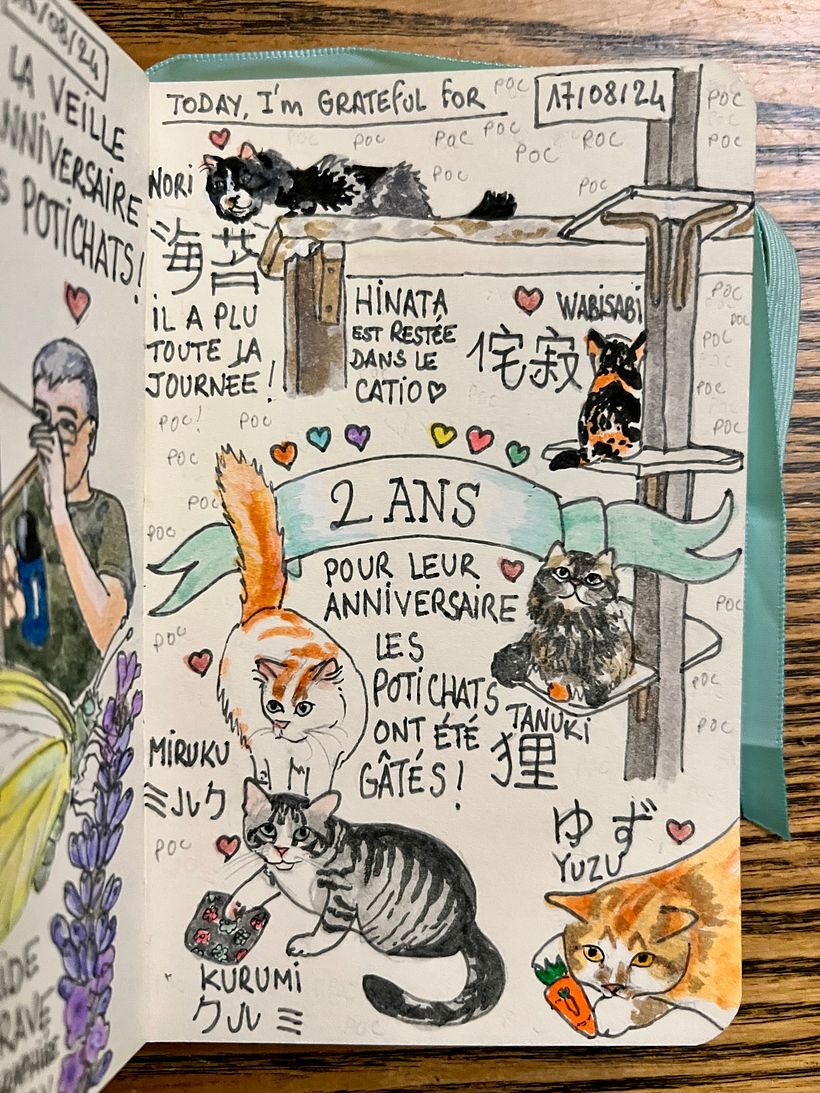 /08/24
LA VEILLE
ANNIVERSAIRE
S POTICHATS!
TODAY, I'm GRATEFUL FOR
17/08/24
POC
POC
POC
POC
POC
POC
POC
POC
POC
POC
POC
NORI
海苔
IL A PLU
TOUTE LA
JOURNÉE!
HINATA
EST RESTÉE
DANS LE
CATIO♡
WABISABI
侘寂
POC
POC
POC
POC
POC
POC!
POC
POC
POC
POC
2 ANS
POUR LEUR
ANNIVERSAIRE
LES
POTICHATS
ONT ÉTÉ
GÂTÉS!
TANUKI
狸
POC
POC
POC
POC
MIRUKU
ミルク
POC
ゆず
YUZU
KURUMI
クルミ
POC
RAVE